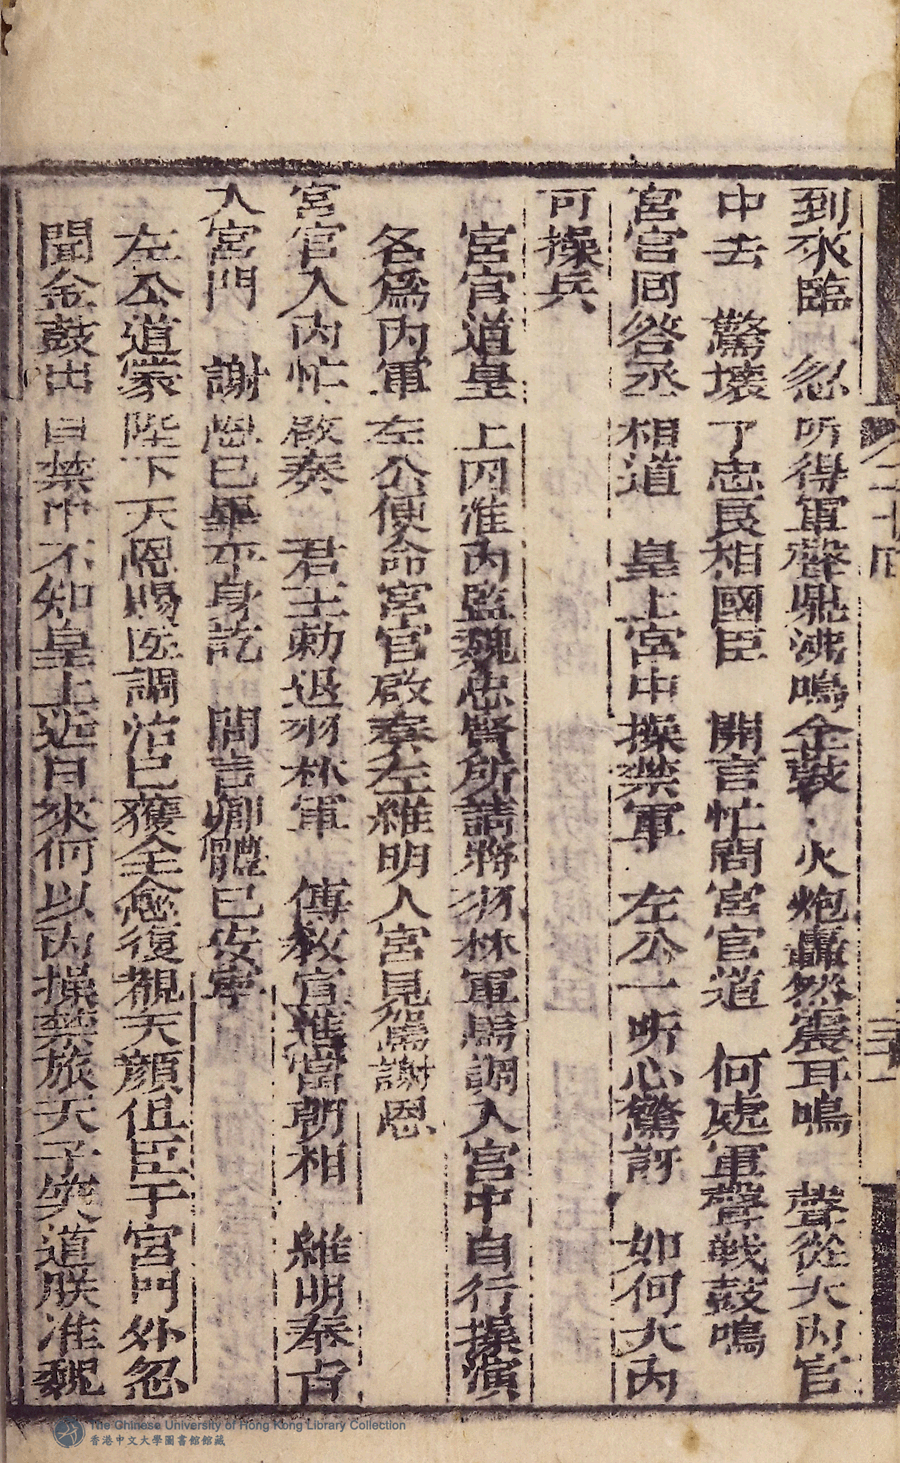 到來臨　忽听得軍聲鼎沸鳴　金鼓火炮轟然震耳鳴　聲從大內宮
中去　驚壞了忠良相國臣　開言忙問宮官道　何處軍聲戰鼓鳴
宮官回答丞相道　皇上宮中操禁軍　左公一听心驚訝　如何大內
可操兵
宮官道皇上因准內監魏忠賢所請將羽林軍馬調入宮中自行操演
各爲內軍左公便命宮官啟奏左維明入宮見駕謝恩
宮官入內忙啟奏　君王勅退羽林軍　傳教宣進當朝相　維明奉旨
入宮門　謝恩已畢平身訖　問言卿體已安寧
左公道蒙陛下天恩賜医調治已獲全愈復觀天顏但臣于宮門外忽
聞金鼓出自禁中不知皇上近日來何以內操禁旅天子笑道朕准魏
二十回
三十一
The Chinese University of Hong Kong Library Collection
香港中文大學圖書館館藏